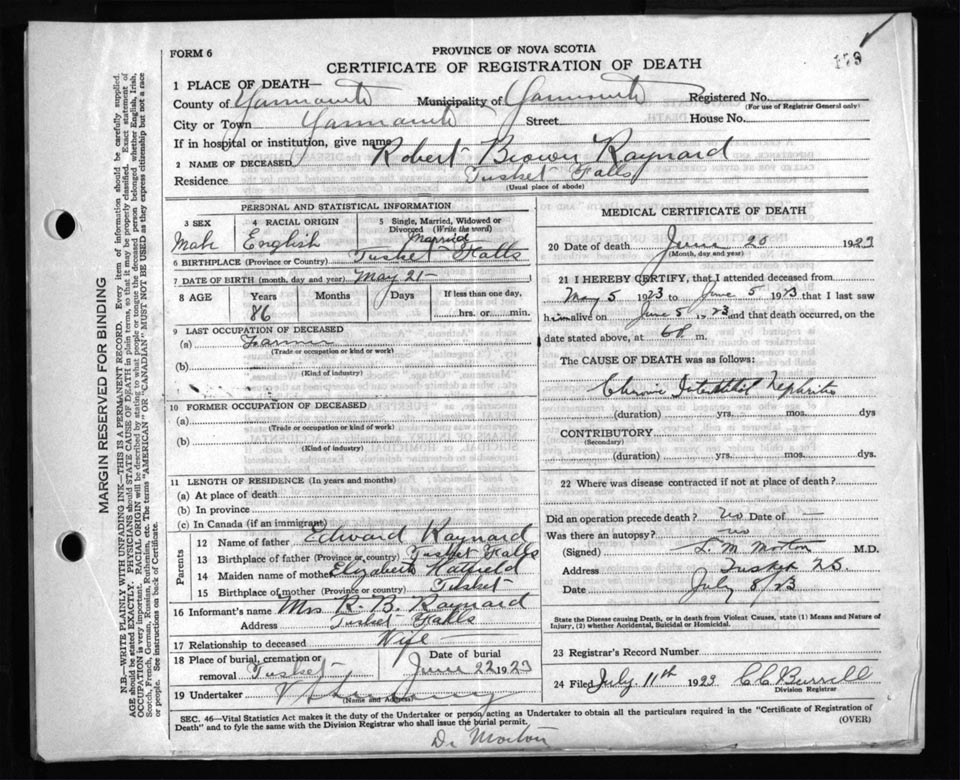 FORM 6
PROVINCE OF NOVA SCOTIA
CERTIFICATE OF REGISTRATION OF DEATH
179
1 PLACE OF DEATH—
County of Yarmouth Municipality of Yarmouth Registered No.
(For use of Registrar General only)
City or Town Yarmouth Street House No.
If in hospital or institution, give name
2 NAME OF DECEASED Robert Brown Raynard
Residence Tusket Falls
(Usual place of abode)
PERSONAL AND STATISTICAL INFORMATION
3 SEX Male
4 RACIAL ORIGIN English
5 Single, Married, Widowed or Divorced (Write the word) Married
6 BIRTHPLACE (Province or Country) Tusket Falls
7 DATE OF BIRTH (month, day and year) May 21-
8 AGE Years 86 Months Days If less than one day, hrs. or min.
9 LAST OCCUPATION OF DECEASED
(a) Farmer
(Trade or occupation or kind or work)
(b)
(Kind of industry)
10 FORMER OCCUPATION OF DECEASED
(a)
(Trade or occupation or kind of work)
(b)
(Kind of industry)
11 LENGTH OF RESIDENCE (In years and months)
(a) At place of death
(b) In province
(c) In Canada (if an immigrant)
Parents
12 Name of father Edward Raynard
13 Birthplace of father (Province or country) Tusket Falls
14 Maiden name of mother Elizabeth Hatfield
15 Birthplace of mother (Province or country) Tusket
16 Informant's name Mrs R. B. Raynard
Address Tusket Falls
17 Relationship to deceased Wife
18 Place of burial, cremation or removal Tusket Date of burial June 22 1923
19 Undertaker
(Name and Address)
MEDICAL CERTIFICATE OF DEATH
20 Date of death June 20 1923
(Month, day and year)
21 I HEREBY CERTIFY, that I attended deceased from
May 5 1923 to June 5 1923 that I last saw
him alive on June 5, 1923 and that death occurred, on
date stated above, at 6 P m.
The CAUSE OF DEATH was as follows:
Chronic Interstitial Nephritis
(duration) yrs. mos. dys
CONTRIBUTORY
(Secondary)
(duration) yrs. mos. dys.
22 Where was disease contracted if not at place of death?
Did an operation precede death? no Date of —
Was there an autopsy? no
(Signed) L. M. Morton M.D.
Address Tusket
Date July 8/23
State the Disease causing Death, or in death from Violent Causes, state (1) Means and Nature of Injury, (2) whether Accidental, Suicidal or Homicidal.
23 Registrar's Record Number
24 Filed July 11th 1923 C C Burrill
Division Registrar
SEC. 46—Vital Statistics Act makes it the duty of the Undertaker or person acting as Undertaker to obtain all the particulars required in the "Certificate of Registration of
Death" and to fyle the same with the Division Registrar who shall issue the burial permit. (OVER)
Dr Morton
MARGIN RESERVED FOR BINDING
N.B.—WRITE PLAINLY WITH UNFADING INK—THIS IS A PERMANENT RECORD. Every item of information should be carefully supplied.
AGE should be stated EXACTLY. PHYSICIANS should STATE CAUSE OF DEATH in plain terms, so that it may be properly classified. Exact statement of
OCCUPATION is very important. RACIAL ORIGIN will be described by stating to what people or tongue the deceased person belonged whether English, Irish,
Scotch, French, German, Russian, Ruthenian, etc. The terms "AMERICAN" OR "CANADIAN" MUST NOT BE USED as they express citizenship but not a race
or people. See instructions on back of Certificate.